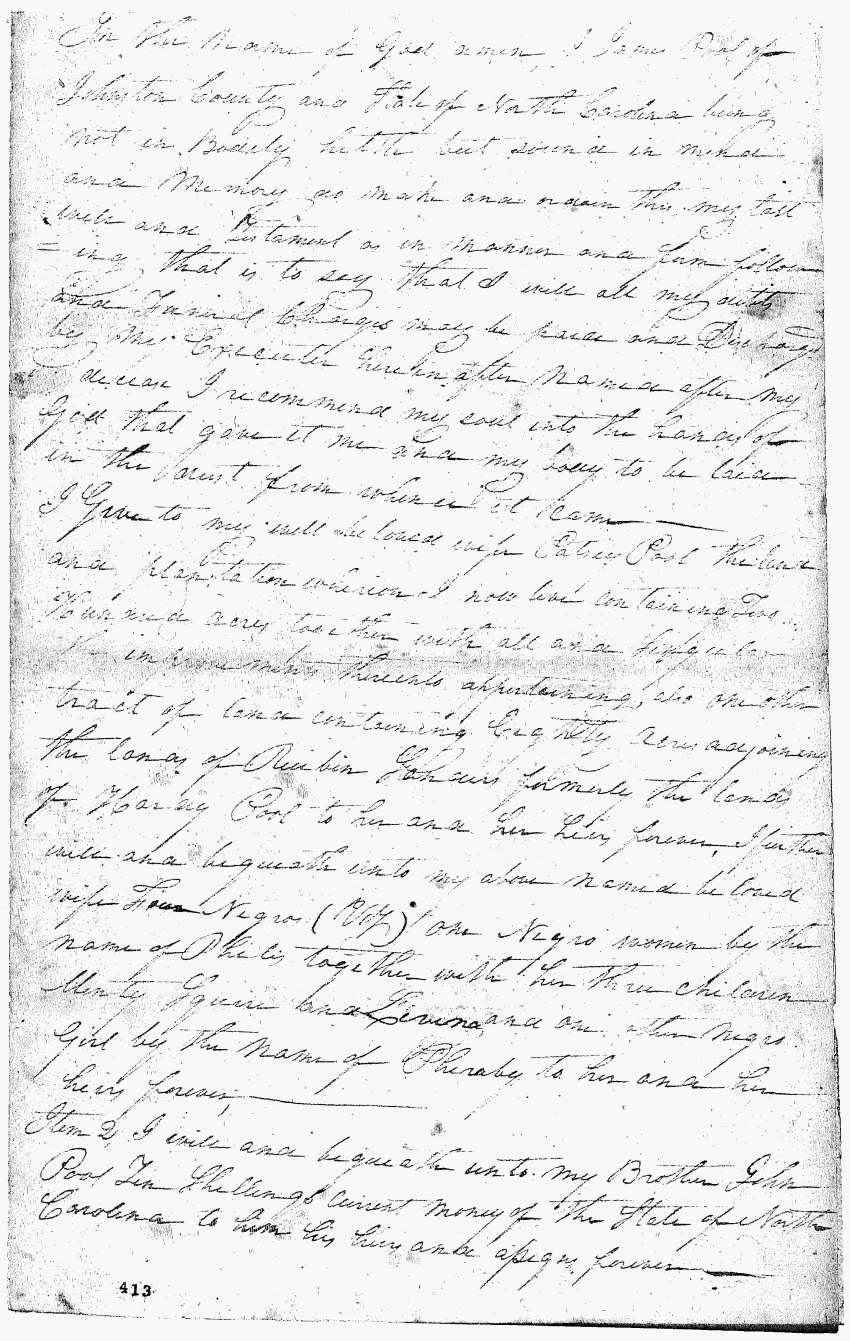 In the Name of God amen, I James Pool of
Johnston County and State of North Carolina being
not in Bodely helth but sound in mind
and Memory do make and ordain this my last
will and Testament as in manner and form follow
=ing that is to say that I will all my debts
and Funirel Charges may be paid and Discharge
by my Executer herein after Named after my
decease I recommend my soul into the hands of
God that gave it me and my body to be laid
in the dust from whence it came
I Give to my well beloved wife Patsey Pool the land
and plantation wherion I now live containing Two
Hundred acres together with all and singular
the improvements thereinto appertaining, also one other
tract of land containing Eightty acres adjoining
the lands of Rueben formerly the lands
of Hardy Pool to her and her heirs forever, I further
will and bequeath unto my above named beloved
wife Four Negros (Viz) one Negro women by the
name of Philis together with her three children
Minty Squire and Levina, and one other negro
Girl by the name of Pheraby to her and her
heirs forever,
Item 2, I will and bequeath unto my Brother John
Pool Ten Shellings current money of the State of North
Carolina to him his heirs and assigns forever
413